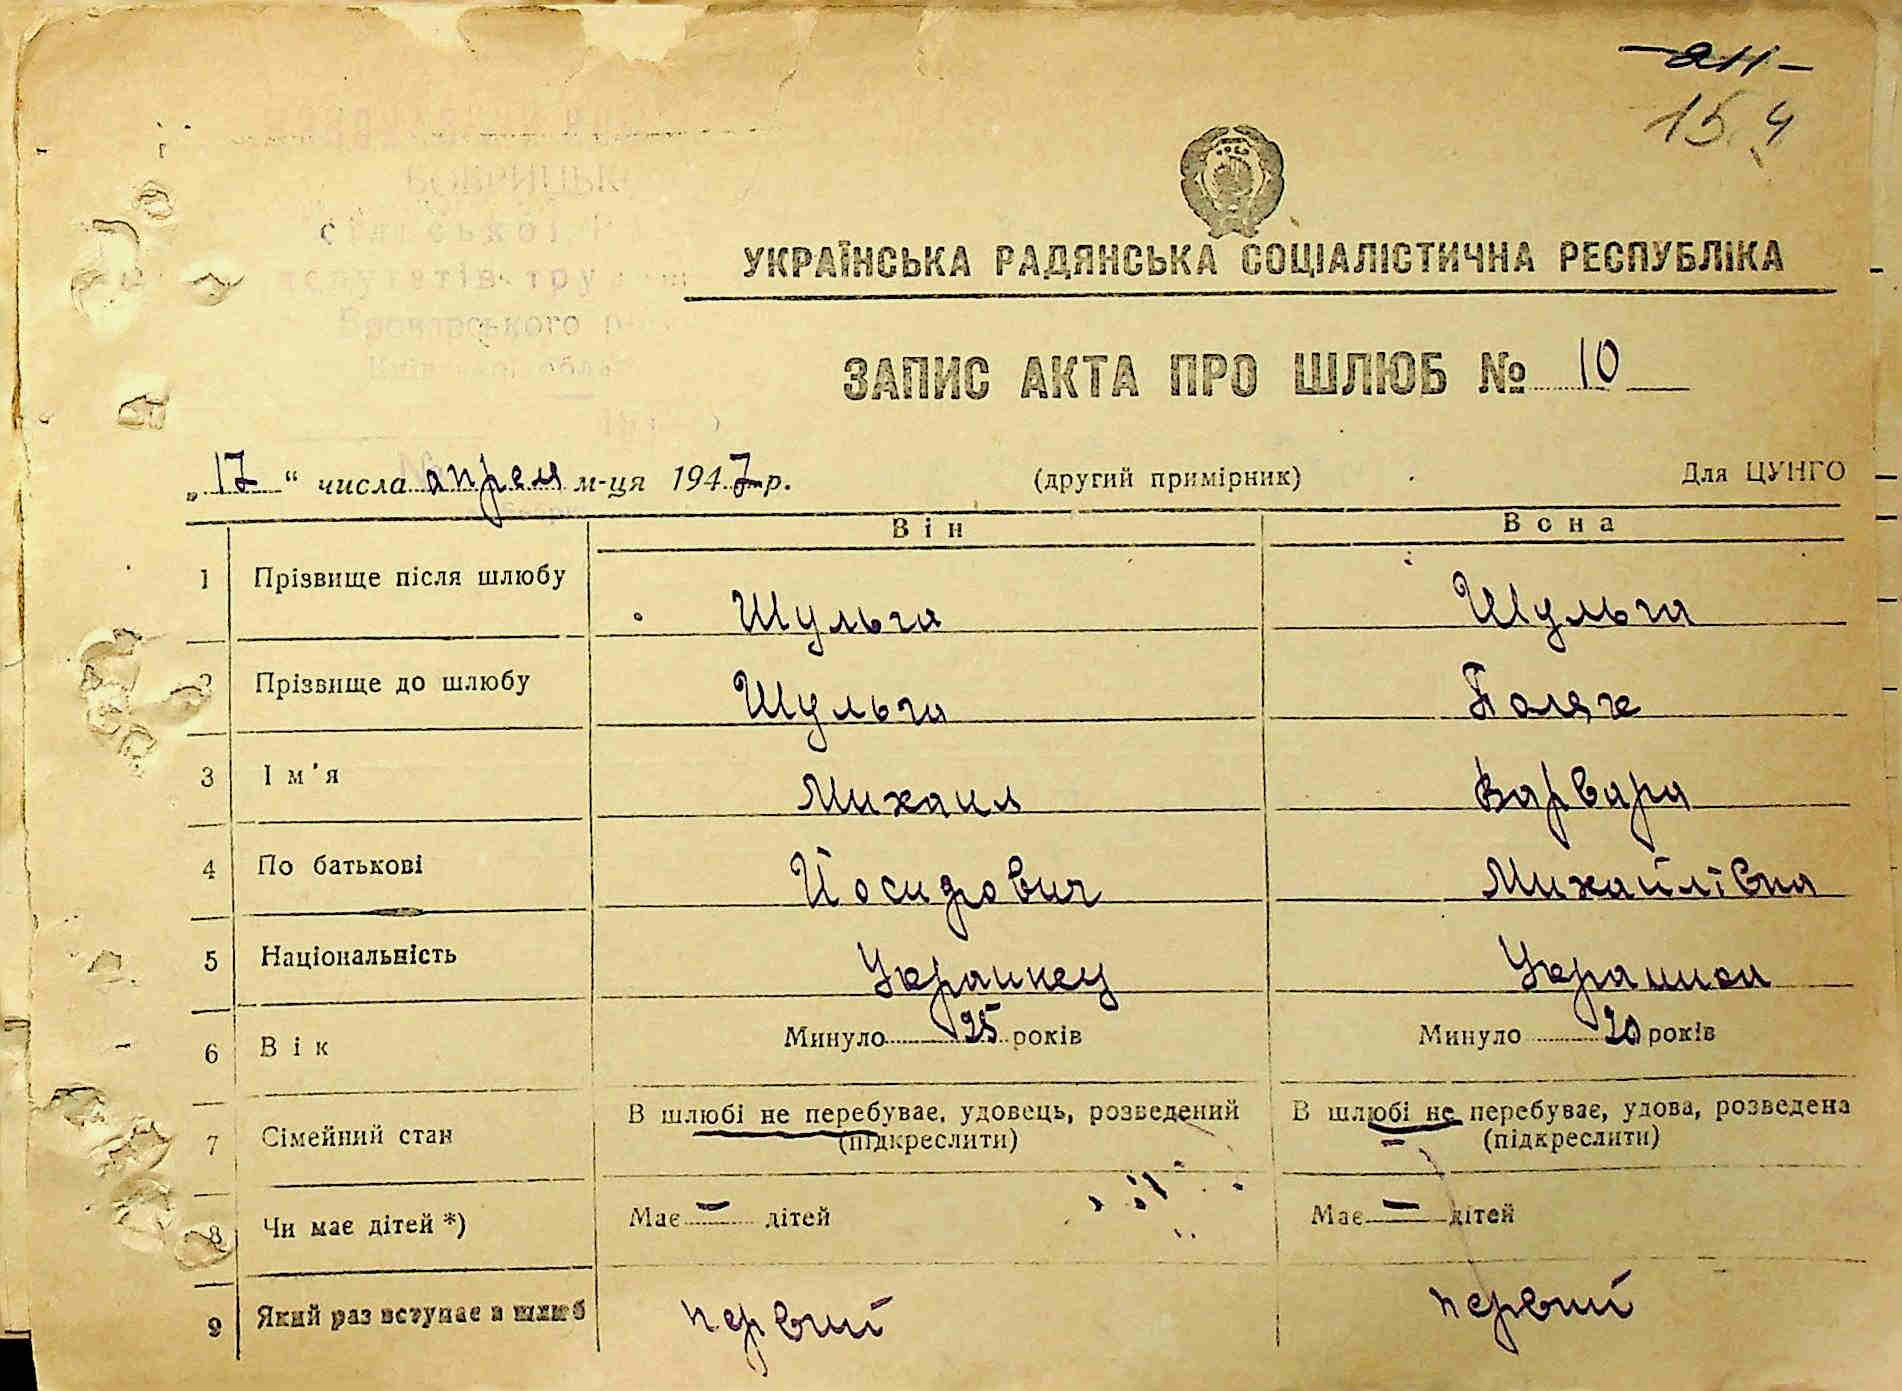 -ан-
15.4
УКРАЇНСЬКА РАДЯНСЬКА СОЦІАЛІСТИЧНА РЕСПУБЛІКА
ЗАПИС АКТА ПРО ШЛЮБ № 10
„17“ числа апреля м-ця 1947 р. (другий примірник) Для ЦУНГО
Він Вона
1 Прізвище після шлюбу Шульга Шульга
2 Прізвище до шлюбу Шульга
3 Ім'я Михаил Варвара
4 По батькові Йосифович Михайлівна
5 Національність Украинец Украинка
6 Вік Минуло 25 років Минуло 20 років
7 Сімейний стан В шлюбі не перебуває, удовець, розведений В шлюбі не перебуває, удова, розведена
(підкреслити) (підкреслити)
8 Чи має дітей *) Має — дітей Має — дітей
9 Який раз вступає в шлюб первий первий